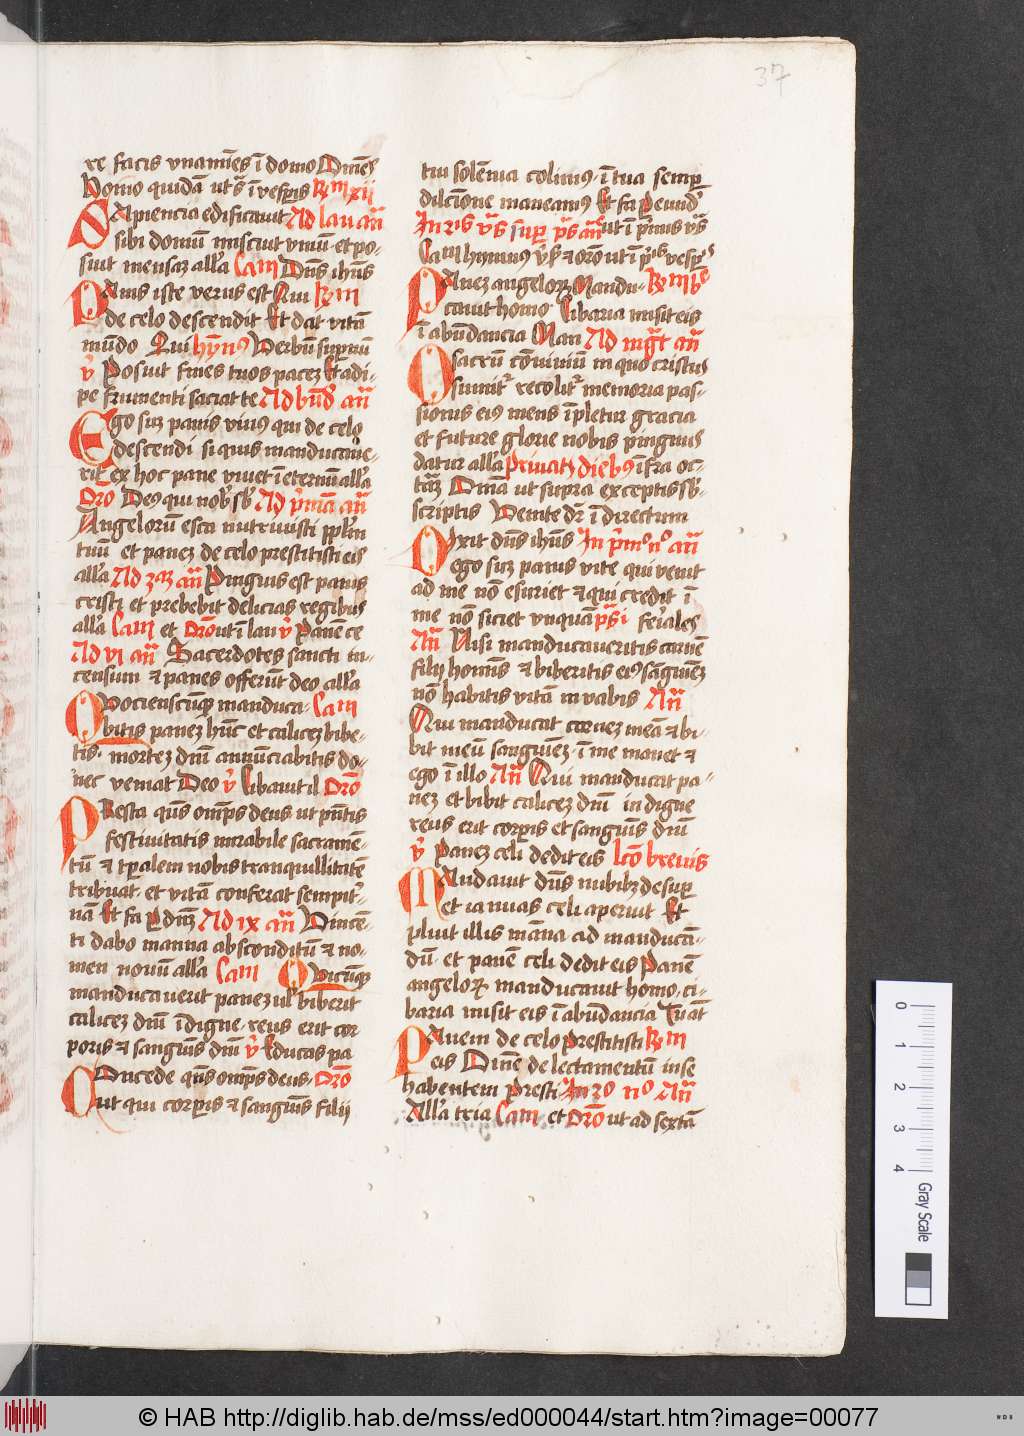 37
re facis vnanimēs ī domo Omēs
Domo quidā ut ī vespis Rm xii
SApiencia edificauit Ad lau an̄
sibi domū miscuit vinū et po-
suit mensaz all'a Cam Dn̄s ihūs
PAnis iste verus est Qui Rm
de celo descendit Et dat vitā
mūdo Qui hȳnꝰ Verbū supnū
v̄ Posuit fines tuos pacez Et adi-
pe frumenti saciat te Ad bn̄d an̄
Ego suz panis viuꝰ qui de celo
descendi si quis manducaue-
rit ex hoc pane viuet ī eternū all'a
Oro Deꝰ qui nob' sb' Ad p̄mā an̄
Angelorū esca nutriuisti ppl'm
tuū et panez de celo prestitisti eis
all'a Ad 3az an̄ Pinguis est panis
cristi et prebebit delicias regibus
all'a Cam et Oro ut ī lau v̄ Panē ce
Ad vi an̄ Sacerdotes sancti in-
censum ⁊ panes offerūt deo all'a
QVociensciūqꝫ manduca- Cam
bitis panez hūc et calicez bibe-
tis mortez dn̄i annūciabitis do-
nec veniat Deo v̄ Cibauit il Orō
PResta qs om̄ps deus ut pn̄tis
festiuitatis mirabile sacramē-
tū ⁊ tpalem nobis tranquillitatē
tribuat et vitā conferat sempit'-
nā Et fa p dn̄z Ad ix an̄ Vincē-
ti dabo manna absconditū ⁊ no-
men nouū all'a Cam QVicūqꝫ
manducauerit panez ul' biberit
calicez dn̄i īdigne reus erit cor
poris ⁊ sanguis dn̄i v̄ Educas pa
COncede qs om̄ps deus Orō
ut qui corpis ⁊ sanguis filii
tui solēnia colimꝰ ī tua semp
dilcīone maneamꝰ Et fa p eund
In 2is vs sup ps an̄ ut ī p̄mis vs
Cam hymnꝰ v̄s ⁊ orō ut ī p̄is vesp
PAnez angeloꝝ Mandu- Rm b
cauit homo Cibaria misit eis
ī abūdancia Man Ad mgt an̄
O sacrū cōuiuiū in quo cristus
sumit' recolit' memoria pas-
sionis eiꝰ mens īpletur gracia
et future glorie nobis pingnus
datur all'a Priuatis diebꝰ īfra oc-
taz Om̄ā ut supra exceptis sb'-
scriptis Venite dr̄ ī directum
DIxit dn̄s ihūs In p̄mo no an̄
ego suz panis vite qui venit
ad me nō esuriet ⁊ qui credit ī
me nō siciet vnquā ps i feiales
An̄ Nisi manducaueritis carnē
filii hominis ⁊ biberitis eiꝰ sāguinez
nō habitis vitā in vobis An̄
Qui manducat carnez meā ⁊ bi-
bit meū sanguinez ī me manet ⁊
ego ī illo An̄ Qui manducat pa-
nez et bibit calicez dn̄i indigne
reus erit corpis et sanguis dn̄i
v̄ Panez celi dedit eis Lcō breuis
MAndauit dn̄s nubibꝫ desup
et ianuas celi aperuit Et
pluit illis māna ad manducā-
dū et panē celi dedit eis Panē
angeloꝝ manducauit homo ci-
baria misit eis ī abūdancia Tu at
PAnem de celo prestitisti Rm
eis Om̄e delectamentū in se
habentem Presti In 2o no An̄
All'a tria Cam et Orō ut ad sextā
0 1 2 3 4
Gray Scale
© HAB http://diglib.hab.de/mss/ed000044/start.htm?image=00077